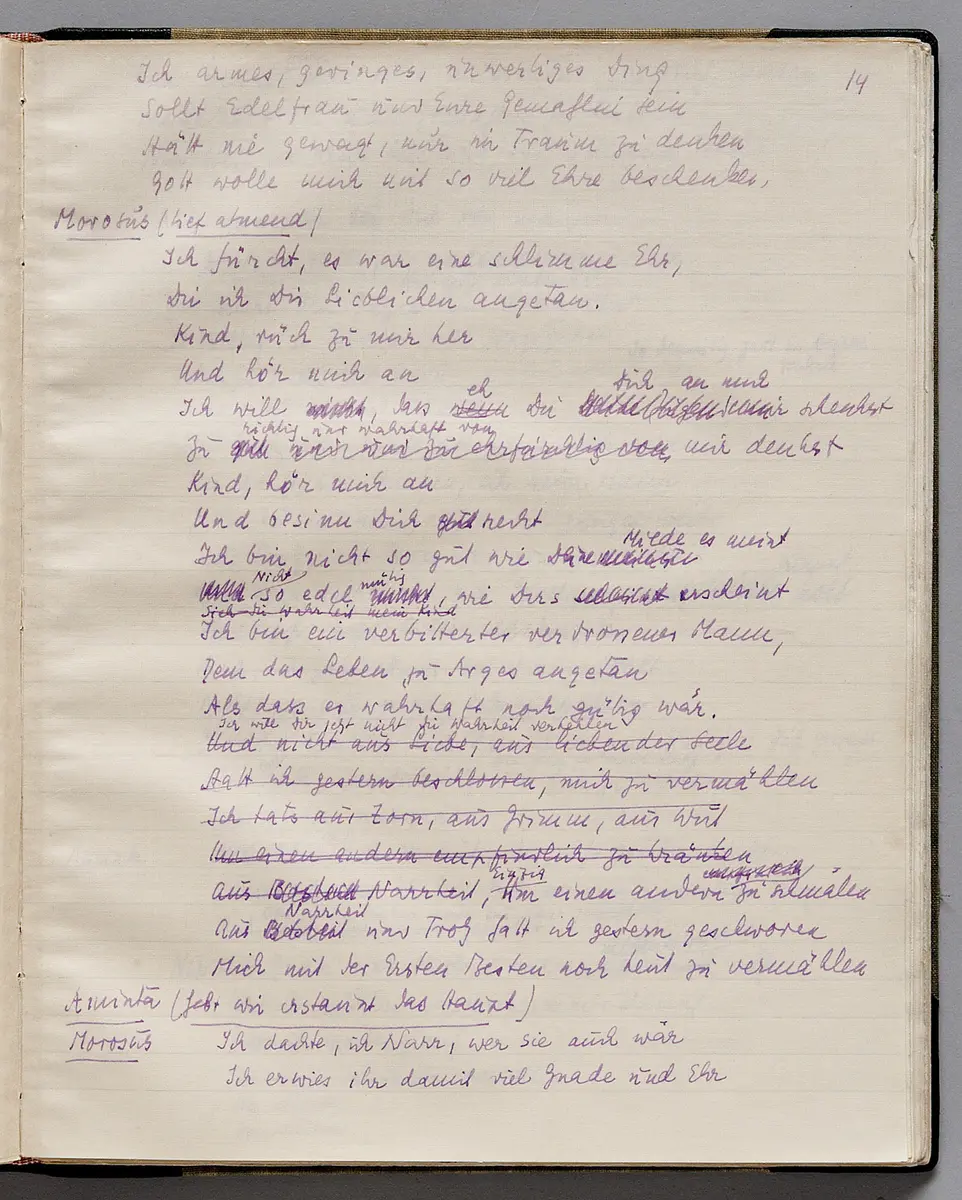 14
Ich armes, geringes, unwertiges Ding
Sollt Edelfrau und Eure Gemahlin sein
Hätt nie gewagt, nur in Traum zu denken
Gott wolle mich mit so viel Ehre beschenken,
Morosus (tief atmend)
Ich fürcht, es war eine schlimme Ehr,
Die ich Dir Lieblichen angetan.
Kind, rück zu mir her
Und hör mich an
eh Dich an mich
Ich will nicht, dass wenn Du mir schenkst
richtig und wahrhaft von
Zu gut und zu ehrfürchtig von mir denkst
Kind, hör mich an
Und besinn Dich gut recht
Milde es meint
Ich bin nicht so gut wie Deine
Nicht mütig
so edel, wie Dirs erscheint
Sieh die Wahrheit mein Kind
Ich bin ein verbitterter verdrossener Mann,
Dem das Leben zu Arges angetan
Als dass er wahrhaft noch gütig wär.
Ich will Dir jetzt nicht die Wahrheit verhehlen
Und nicht aus Liebe, aus liebender Seele
Hatt ich gestern beschlossen, mich zu vermählen
Ich tats aus Zorn, aus Grimm, aus Wut
Um einen andern empfindlich zu kränken
Einzig
aus Bosheit Narrheit, Um einen andern zu schmälen
Narrheit
Aus Bosheit und Trotz hatt ich gestern geschworen
Mich mit der Ersten Besten noch heut zu vermählen
Aminta (hebt wie erstaunt das Haupt)
Morosus Ich dachte, ich Narr, wer sie auch wär
Ich erwies ihr damit viel Gnade und Ehr